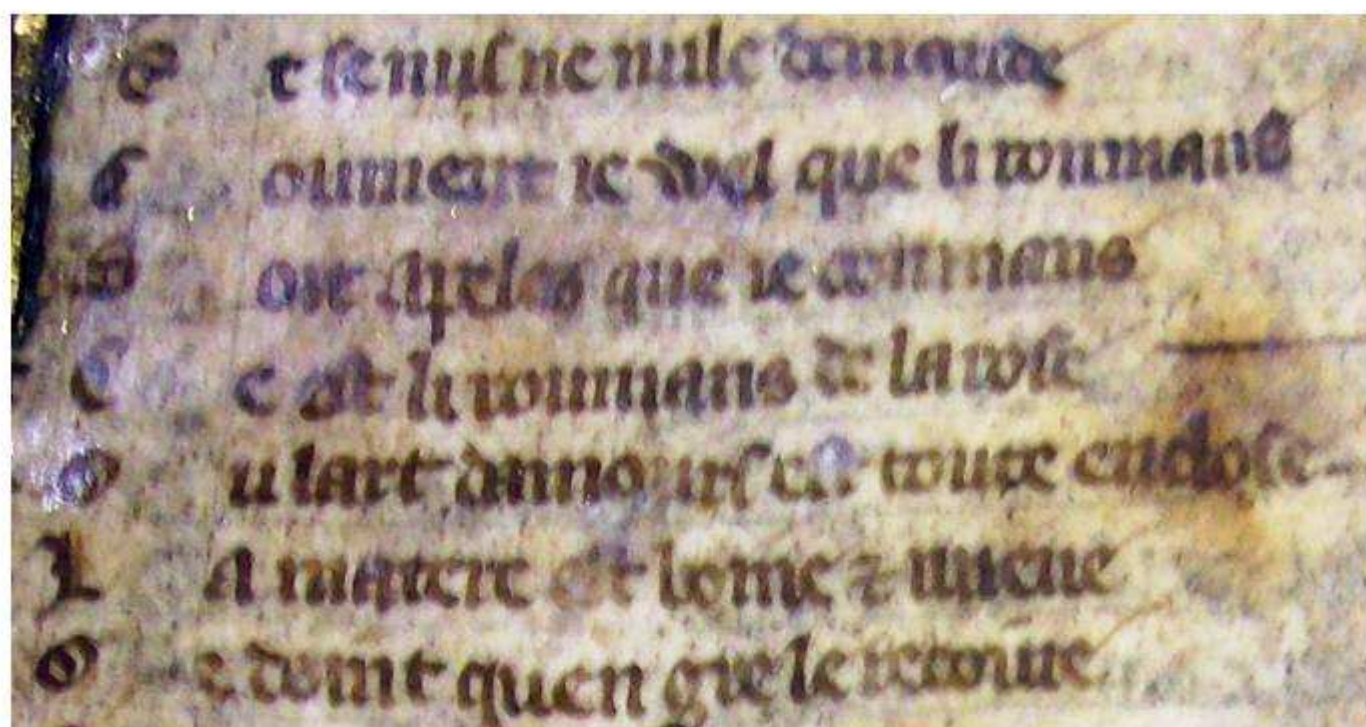 E t se nus ne nule demande
C oument ie voel que li roumans
S oit apeles que ie commans
C e est li roumans de la rose
O u lart damours est toute enclose
L a matere est bonne ⁊ nueue
O r doint quen gre le recoiue